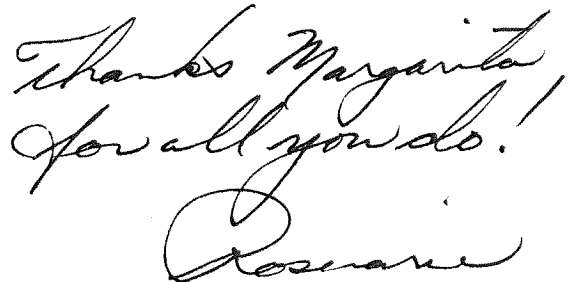 Thanks Margarita
for all you do!
Rosemarie